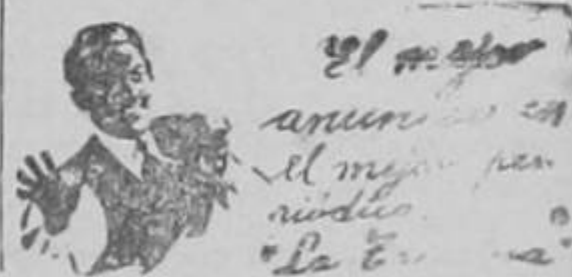 El mejor
anuncio en
el mejor pe-
riódico
"La